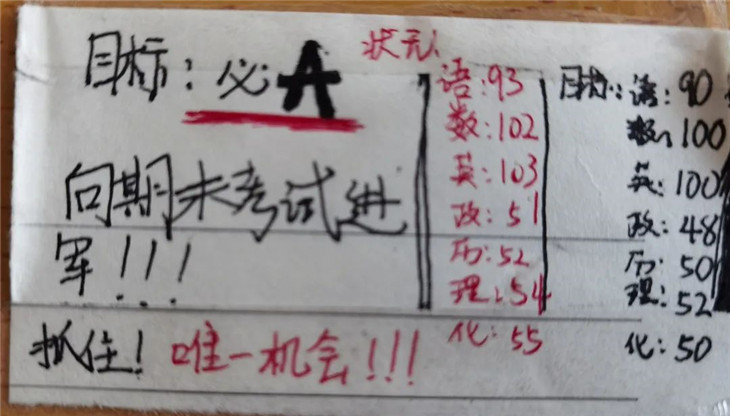 目标：必A
向期末考试进
军！！！
抓住！唯一机会！！！
状元：
语：93
数：102
英：103
政：51
历：52
理：54
化：55
目标：语：90
数：100
英：100
政：48
历：50
理：52
化：50